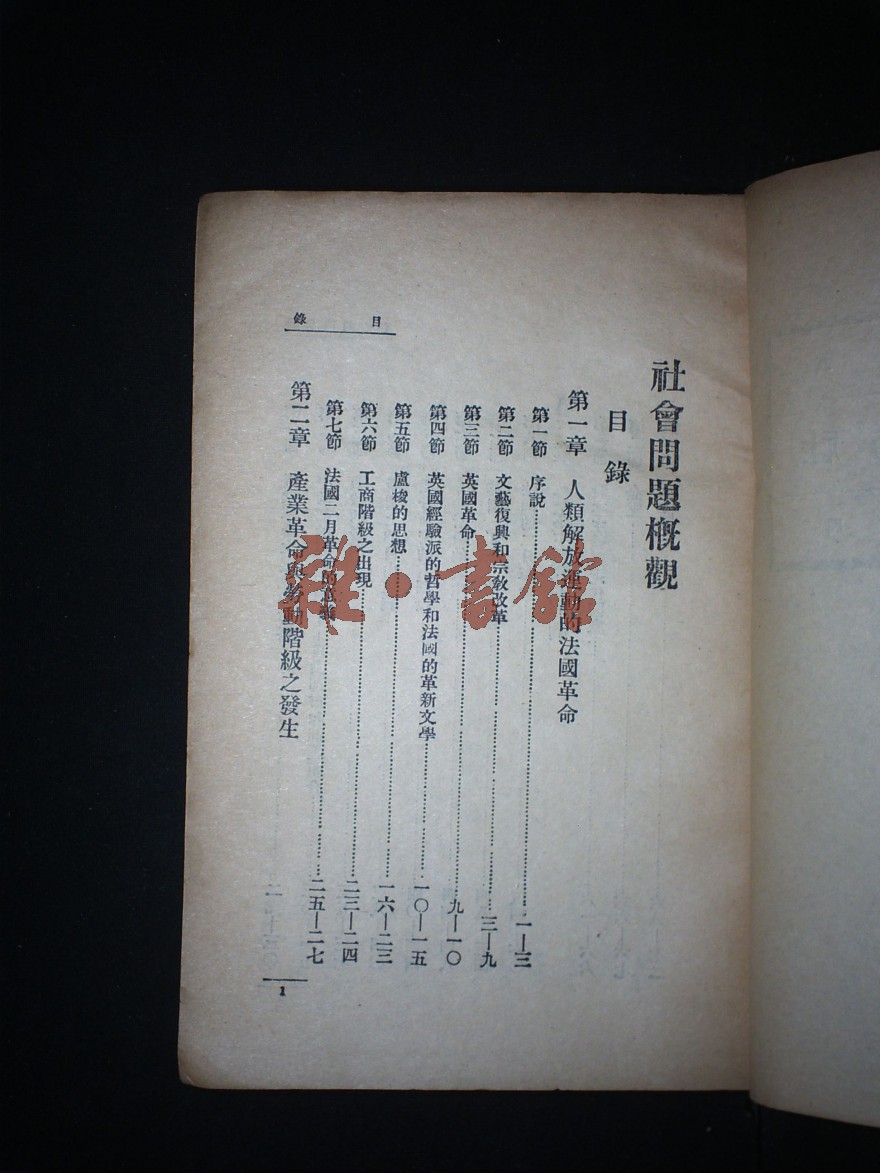 社會問題概觀
目錄
第一章 人類解放運動的法國革命
第一節 序說……一—三
第二節 文藝復興和宗敎改革……三—九
第三節 英國革命……九—一〇
第四節 英國經驗派的哲學和法國的革新文學……一〇—一五
第五節 盧梭的思想……一六—二三
第六節 工商階級之出現……二三—二四
第七節 法國二月革命的……二五—二七
第二章 產業革命與勞動階級之發生
目錄
1
雜·書館